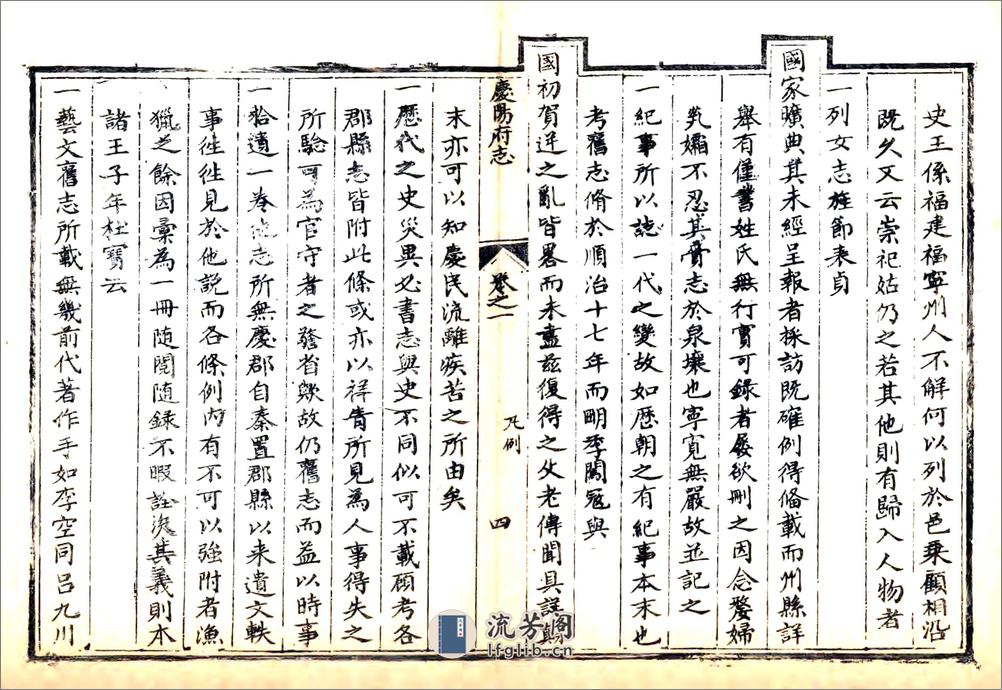 史王係福建福寧州人不解何以列於邑乘顧相沿
既久又云崇祀姑仍之若其他則有歸入人物者
一列女志旌節表貞
國家曠典其未經呈報者採訪既確例得俻載而州縣詳
舉有僅書姓氏無行實可錄者屡欲刪之因念嫠婦
煢孀不忍其賫志於泉壤也寧寬無嚴故並記之
一紀事所以誌一代之變故如歷朝之有紀事本末也
考舊志脩於順治十七年而眀季闖冦與
國初賀逆之亂皆畧而未盡兹復得之父老傳聞具詳顛
慶陽府志
卷之一
凡例
四
末亦可以知慶民流離疾苦之所由矣
一歷代之史災異必書志與史不同似可不載顧考各
郡縣志皆附此條或亦以祥眚所見為人事得失之
所騐可為官守者之警省歟故仍舊志而益以時事
一拾遺一卷他志所無慶郡自秦置郡縣以来遺文軼
事徃徃見於他説而各條例内有不可以強附者漁
獵之餘因彙為一冊随閲随録不暇詮次其義則本
諸王子年杜寶云
一藝文舊志所載無幾前代著作手如李空同吕九川
流芳阁
lfglib.cn